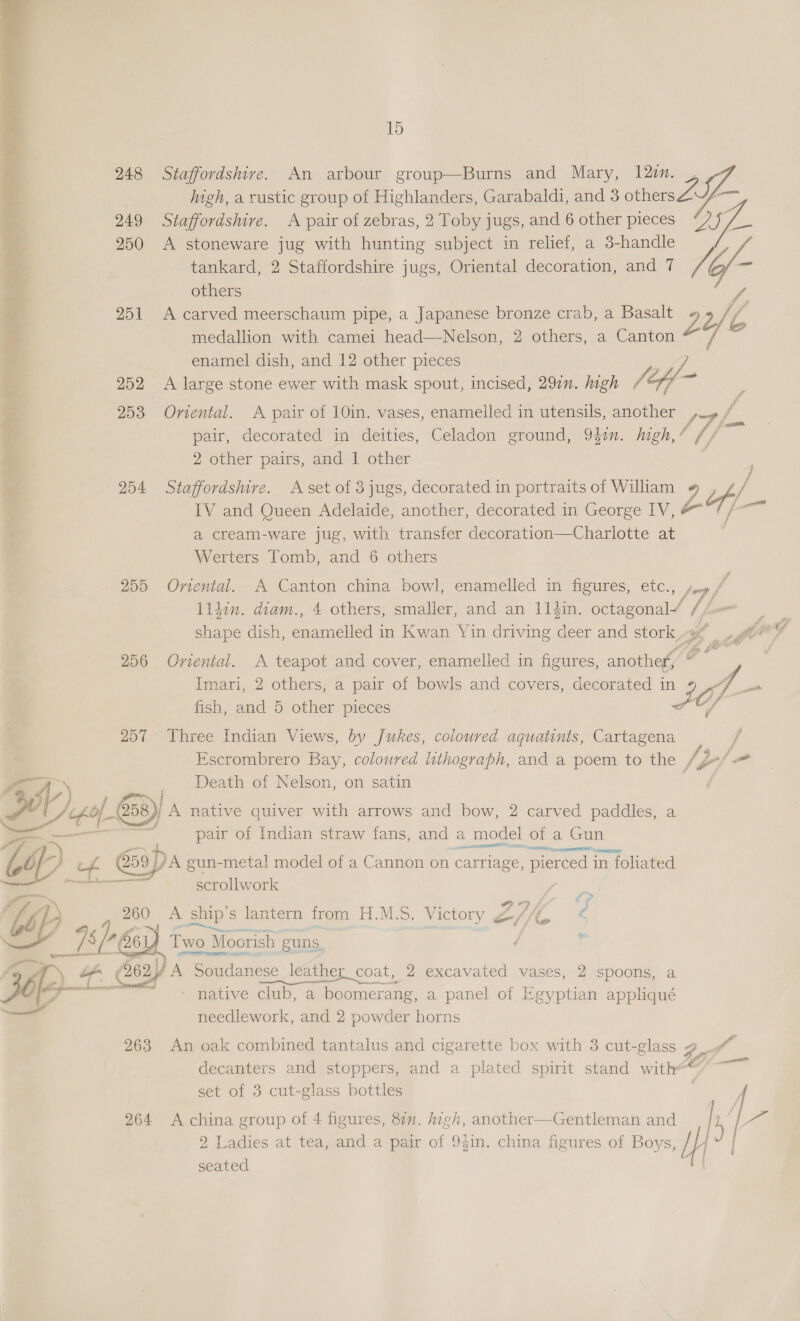 15
248 Staffordshire. An arbour group—Burns and Mary, 12in.
high, a rustic group of Highlanders, Garabaldi, and 3 others
249 Staffordshire. A pair of zebras, 2 Toby jugs, and 6 other pieces
250 A stoneware jug with hunting subject in relief, a 3-handle
tankard, 2 Staffordshire jugs, Oriental decoration, and 7
others
251 A carved meerschaum pipe, a Japanese bronze crab, a Basalt
medallion with camei head—Nelson, 2 others, a Canton
enamel dish, and 12 other pieces
252 A large stone ewer with mask spout, incised, 29in. high
253 Oriental. A pair of 10in. vases, enamelled in utensils, another
pair, decorated in deities, Celadon ground, 9½in. high,
2 other pairs, and 1 other
254 Staffordshire. A set of 3 jugs, decorated in portraits of William
IV and Queen Adelaide, another, decorated in George IV,
a cream-ware jug, with transfer decoration—Charlotte at
Werters Tomb, and 6 others
255 Oriental. A Canton china bowl, enamelled in figures, etc.,
11½in. diam., 4 others, smaller, and an 11½in. octagonal
shape dish, enamelled in Kwan Yin driving deer and stork
256 Oriental. A teapot and cover, enamelled in figures, another,
Imari, 2 others, a pair of bowls and covers, decorated in
fish, and 5 other pieces
257 Three Indian Views, by Jukes, coloured aquatints, Cartagena
Escrombrero Bay, coloured lithograph, and a poem to the
Death of Nelson, on satin
258 A native quiver with arrows and bow, 2 carved paddles, a
pair of Indian straw fans, and a model of a Gun
259 A gun-metal model of a Cannon on carriage, pierced in foliated
scrollwork
260 A ship's lantern from H.M.S. Victory
261 Two Moorish guns
262 A Soudanese leather coat, 2 excavated vases, 2 spoons, a
native club, a boomerang, a panel of Egyptian appliqué
needlework, and 2 powder horns
263 An oak combined tantalus and cigarette box with 3 cut-glass
decanters and stoppers, and a plated spirit stand with
set of 3 cut-glass bottles
264 A china group of 4 figures, 8in. high, another—Gentleman and
2 Ladies at tea, and a pair of 9½in. china figures of Boys,
seated